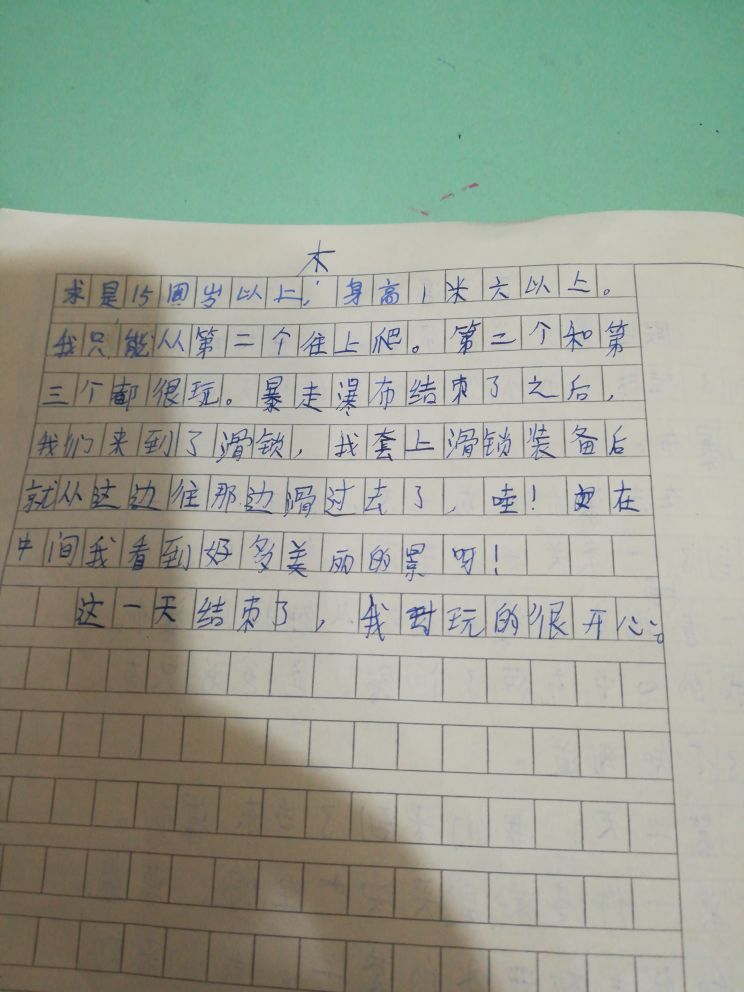 木
求是15周岁以上，身高1米六以上。
我只能从第二个往上爬。第二个和第
三个都很玩。暴走瀑布结束了之后，
我们来到了滑锁，我套上滑锁装备后
就从这边往那边滑过去了，哇！在
中间我看到好多美丽的景呀！
这一天结束了，我玩的很开心。